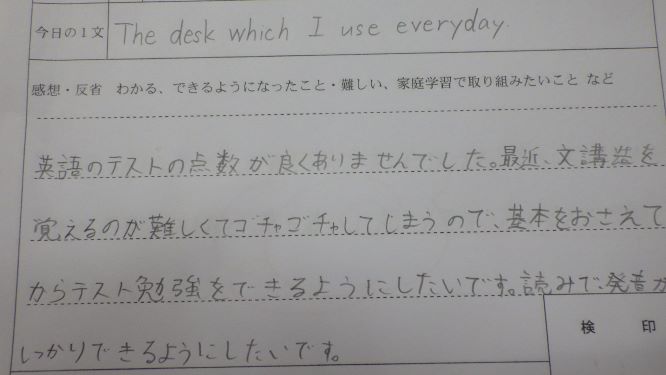 今日の1文 The desk which I use everyday.
感想・反省 わかる、できるようになったこと・難しい、家庭学習で取り組みたいこと など
英語のテストの点数が良くありませんでした。最近、文講造を
覚えるのが難しくてゴチャゴチャしてしまうので、基本をおさえて
からテスト勉強をできるようにしたいです。読みで、発音が
しっかりできるようにしたいです。
検 印